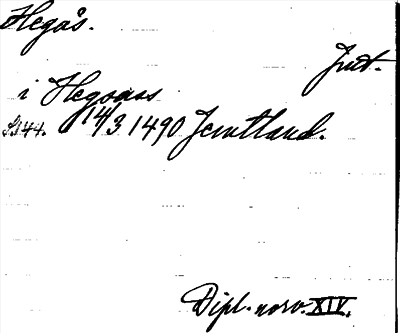 Hegås.
Jmt.
i Hegsaas
S. 144. 14/3 1490 Jemtland.
Dipl. norv. XIV.